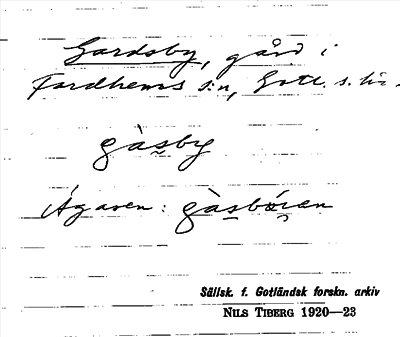 Gardsby, gård i
Fardhems s:n, Gotl. s. hd.
gàs̰by
Ägaren: gàs̰bɷɹen
Sällsk. f. Gotländsk forskn. arkiv
NILS TIBERG 1920—23